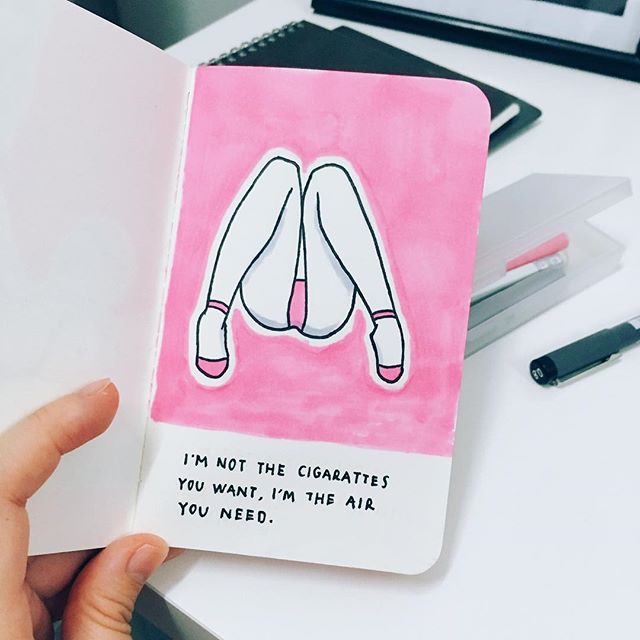 I'M NOT THE CIGARATTES
YOU WANT, I'M THE AIR
YOU NEED.